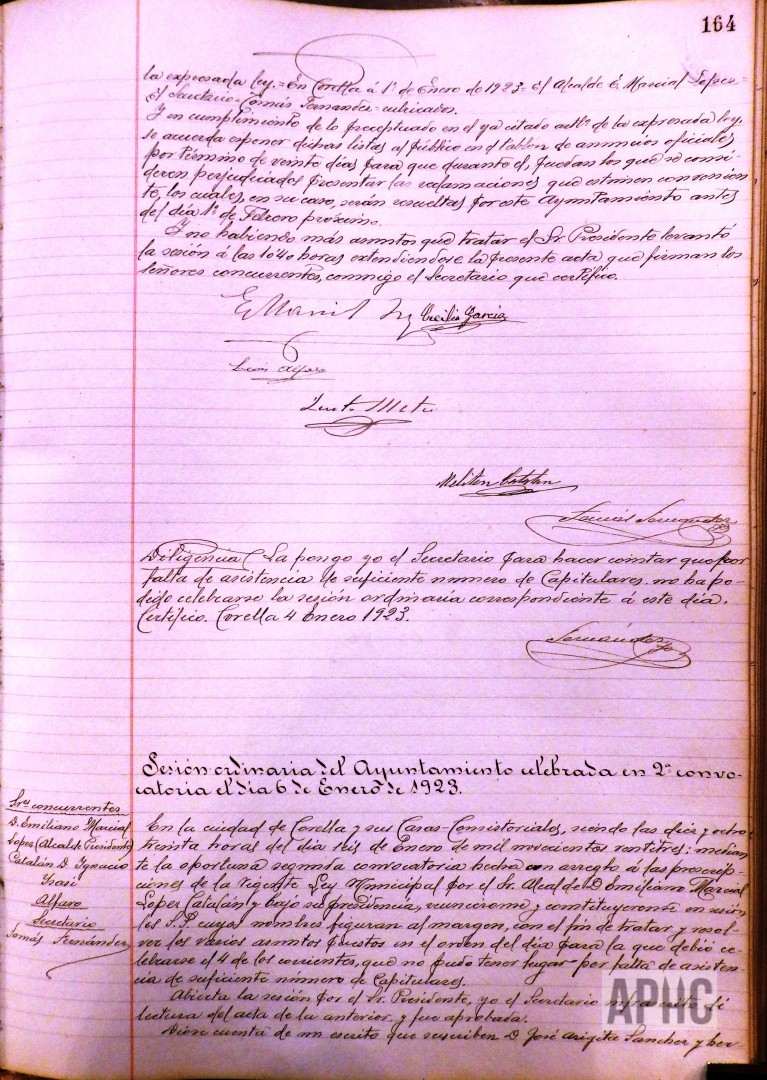 164
la expresada ley.=En Corella á 1º de Enero de 1923=El Alcalde E. Marcial Lopez=
El Secretario=Tomás Fernandez=rubricados.
Y en cumplimiento de lo preceptuado en el ya citado artº de la expresada ley,
se acuerda esponer dichas listas al público en el tablon de anuncios oficiales
por término de veinte días para que durante él, puedan los que se consi-
deren perjudicados presentar las reclamaciones que estimen convenien
te, los cuales, en su caso, serán resueltas por este Ayuntamiento antes
del día 1º de Febrero próximo.
Y no habiendo más asuntos que tratar el Sr. Presidente levantó
la sesión á las 10'40 horas extendiéndose la presente acta que firman los
señores concurrentes, conmigo el Secretario que certifico.
E Marcial Cecilio Garcia
Luis Alfaro
Justo
Meliton Catalan
Tomás Fernandez
Diligencia ( La pongo yo el Secretario para hacer constar que por
falta de asistencia de suficiente número de Capitulares no ha po-
dido celebrarse la sesión ordinaria correspondiente á este día.
Certifico. Corella 4 Enero 1923.
Fernández
Sesión ordinaria del Ayuntamiento celebrada en 2ª convo-
catoria el día 6 de Enero de 1923.
Sres concurrentes
D. Emiliano Marcial
Lopez (Alcalde Presidente)
Catalán D. Ignacio
Ysasi
Alfaro
Secretario
Tomás Fernández
En la ciudad de Corella y sus Casas-Consistoriales, siendo las diez y ocho
treinta horas del día seis de Enero de mil novecientos veintitres; median
te la oportuna segunda convocatoria hecha con arreglo á las prescrip-
ciones de la vigente Ley Municipal por el Sr. Alcalde D Emiliano Marcial
Lopez Catalán y bajo su presidencia, reunieronse y constituyeronse en sesión
los S.S. cuyos nombres figuran al margen, con el fin de tratar y resol-
ver los varios asuntos puestos en el orden del día para la que debió ce-
lebrarse el 4 de los corrientes, que no pudo tener lugar por falta de asisten-
cia de suficiente número de Capitulares.
Abierta la sesión por el Sr. Presidente, yo el Secretario infrascrito dí
lectura del acta de la anterior, y fue aprobada.
Dióse cuenta de un escrito que suscriben D José Arigita Sanchez y her
APHC